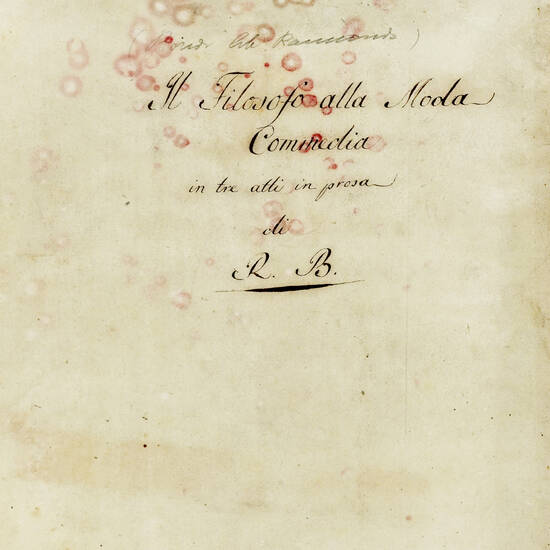 Il Filosofo alla Moda
Commedia
in tre atti in prosa
di
R. B.